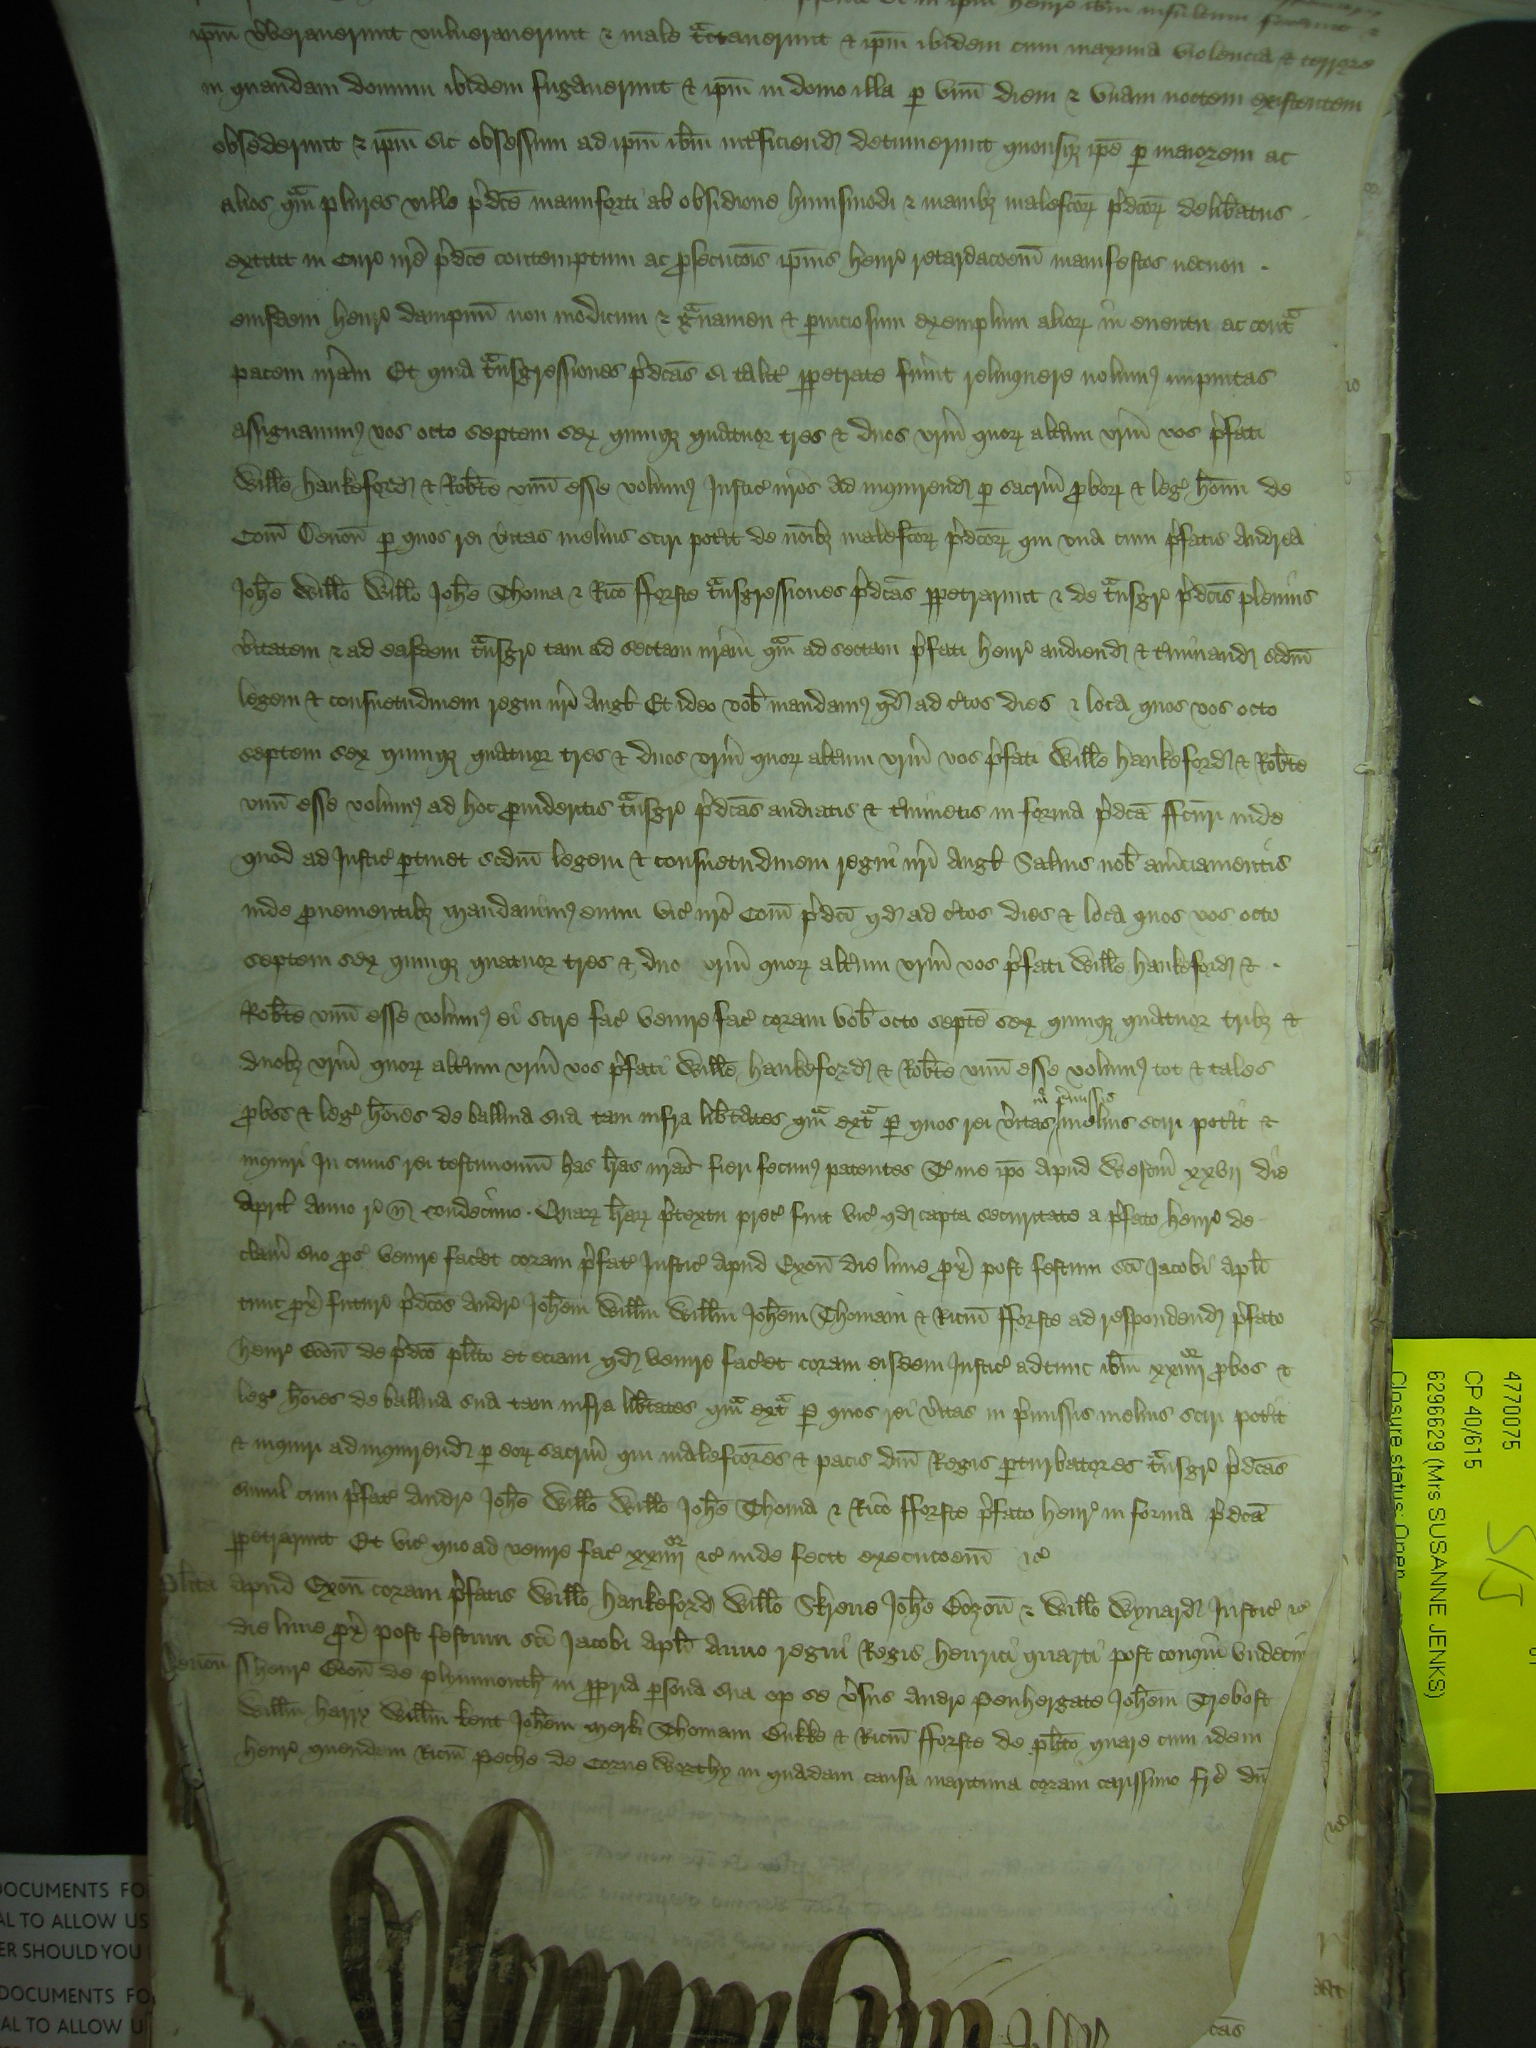 ip̄m v̓berauerunt vulnerauerunt & male tᵃctauerunt & ip̄m ibidem cum maxima violencia & terrore
in quandam domum ibidem fugauerunt & ip̄m in domo illa p̱ vnū diem & vnam noctem existentem
obsederunt & ip̄m sic obsessum ad ip̄m ib̄m int̓ficiend̛ detinuerunt quousq̨ ip̄e p̱ maiorem ac
alios qᵃm plures ville p̓dc̄e manuforti ab obsidione hui̓smodi & manib̨ malefc̄or̨ p̓dc̄or̨ delib̓atus
extitit in Cur̓ nr̄e p̓dc̄e contemptum ac p̱secuc̄ois ip̄ius Henr̓ retardac̄oem̄ manifestos necnon
eiusdem Henr̓ dampnū non modicum & gᵃuamen & p̱niciosum exemplum alior̨ in euentu ac contᵃ
pacem nr̄am Et quia tᵃnsgressiones p̓dc̄as si talit̓ p̱petrate fu̓int relinquere nolum̓ impunitas
assignauim̓ vos octo septem sex quinq̨ quatuor tres & duos vr̄m quor̨ alt̓um vr̄m vos p̓fati
Will̄e Hankeford̛ & Rob̄te vnū esse volum̓ Justic̓ nr̄os ad inquirend̛ p̱ sacr̄m p̱bor̨ & leg̓ hōīm de
Com̄ Deuon̄ p̱ quos rei v̓itas melius sciri pot̓it de noīb̨ malefc̄or̨ p̓dc̄or̨ qui vna cum p̓fatis Andrea
Joh̄e Will̄o Will̄o Joh̄e Thoma & Ric̄o fforste tᵃnsgressiones p̓dc̄as p̱petrarunt & de tᵃnsgr̓ p̓dc̄is plenius
v̓itatem & ad easdem tᵃnsgr̓ tam ad sectam nr̄am qᵃm ad sectam p̓fati Henr̓ audiend̛ & t̓minand̛ scdm̄
legem & consuetudinem regni nr̄i Angl̄ Et ideo vob̄ mandam̓ qd̛ ad c̓tos dies & loca quos vos octo
septem sex quinq̨ quatuor tres & duos vr̄m quor̨ alt̓um vr̄m vos p̓fati Will̄e Hankeford̛ & Rob̄te
vnū esse volum̓ ad hoc p̱uideritis tᵃnsgr̓ p̓dc̄as audiatis & t̓minetis in forma p̓dc̄a ffc̄uri inde
quod ad Justic̓ p̱tinet scdm̄ legem & consuetudinem regni nr̄i Angl̄ Saluis nob̄ am̓ciamentis
inde p̱uenientib̨ Mandauim̓ enim vic̓ nr̄o Com̄ p̓dc̄i qd̛ ad c̓tos dies & loca quos vos octo
septem sex quinq̨ quatuor tres & duo vr̄m quor̨ alt̓um vr̄m vos p̓fati Will̄e Hankeford̛ &
Rob̄te vnū esse volum̓ ei scire fac̓ venire fac̓ coram vob̄ octo septē sex quinq̨ quatuor trib̨ &
duob̨ vr̄m quor̨ alt̓um vr̄m vos p̓fati Will̄e Hankeford̛ & Rob̄te vnū esse volum̓ tot & tales
p̱bos & leg̓ hōies de balliua sua tam infra lib̄tates qᵃm extᵃ p̱ quos rei v̓itas in p̓missis melius sciri pot̓it &
inquiri In cuius rei testimoniū has lr̄as nr̄as fieri fecim̓ patentes T̄ me ip̄o apud Westm̄ xxvii die
April̄ Anno r̄ n̄ vndecimo. Quar̨ lr̄ar̨ p̓textu prec̓ fuit vic̓ qd̛ capta securitate a p̓fato Henr̓ de
clam̄ suo p̱s̓ venire fac̓et coram p̓fat̓ Justic̓ apud Exon̄ die lune p̱x̓ post festum sc̄i Jacobi apl̄i
tunc p̱x̓ futur̓ p̓dc̄os Andr̓ Joh̄em Will̄m Will̄m Joh̄em Thomam & Ric̄m fforste ad respondend̛ p̓fato
Henr̓ Don̄ de p̓dc̄o pl̄ito et eciam qd̛ venire fac̓et coram eisdem Justic̓ adtunc ib̄m xxiiiiᵒʳ p̱bos &
leg̓ hōies de balliua sua tam infra lib̄tates qᵃm extᵃ p̱ quos rei v̓itas in p̓missis melius sciri pot̓it
& inquiri ad inquirend̛ p̱ eor̨ sacr̄m qui malefc̄ores & pacis dn̄i Regis p̱turbatores tᵃnsgr̓ p̓dc̄as
simul cum p̓fat̓ Andr̓ Joh̄e Will̄o Will̄o Joh̄e Thoma & Ric̄o fforste p̓fato Henr̓ in forma p̓dc̄a
p̱petrarunt Et vic̓ quo ad venire fac̓ xxiiiiᵒʳ &c̓ inde fecit execuc̄oem̄ &c̓
Pl̄ita apud Exon̄ coram p̓fatis Will̄o Hankeford̛ Will̄o Skrene Joh̄e Cozon̄ & Will̄o Wynard̛ Justic̓ &c̓
die lune p̱x̓ post festum sc̄i Jacobi apl̄i Anno regni Regis Henrici quarti post conqm̄ vndecim
Deuon̄ ss Henr̓ Don̄ de Plummouth̄ in p̱pria p̱sona sua op̄ se v̓sus Andr̓ Penhergate Joh̄em Trebost
Will̄m Harry Will̄m Kent Joh̄em Merk̄ Thomam Sukke & Ric̄m fforste de pl̄ito quare cum idem
Henr̓ quendam Ric̄m Peche de Corneworthy in quadam causa maritima coram carissimo fr̄e dn̄
4770075
CP 40/615
6296629 (Mrs SUSANNE JENKS)
Closure status: Open
S/J
DOCUMENTS FO
AL TO ALLOW US
ER SHOULD YOU
DOCUMENTS FO
AL TO ALLOW U